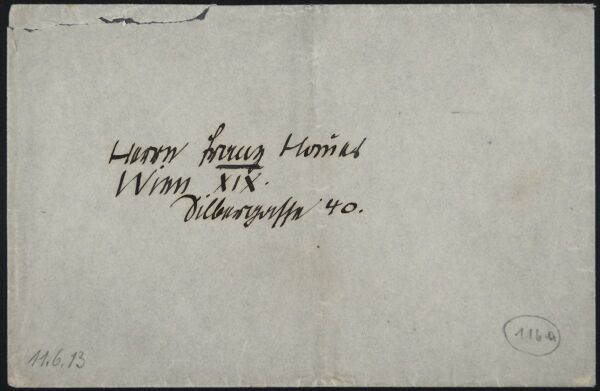 Herrn Franz Hauer
Wien XIX.
Silbergasse 40.
11.6.13
116a